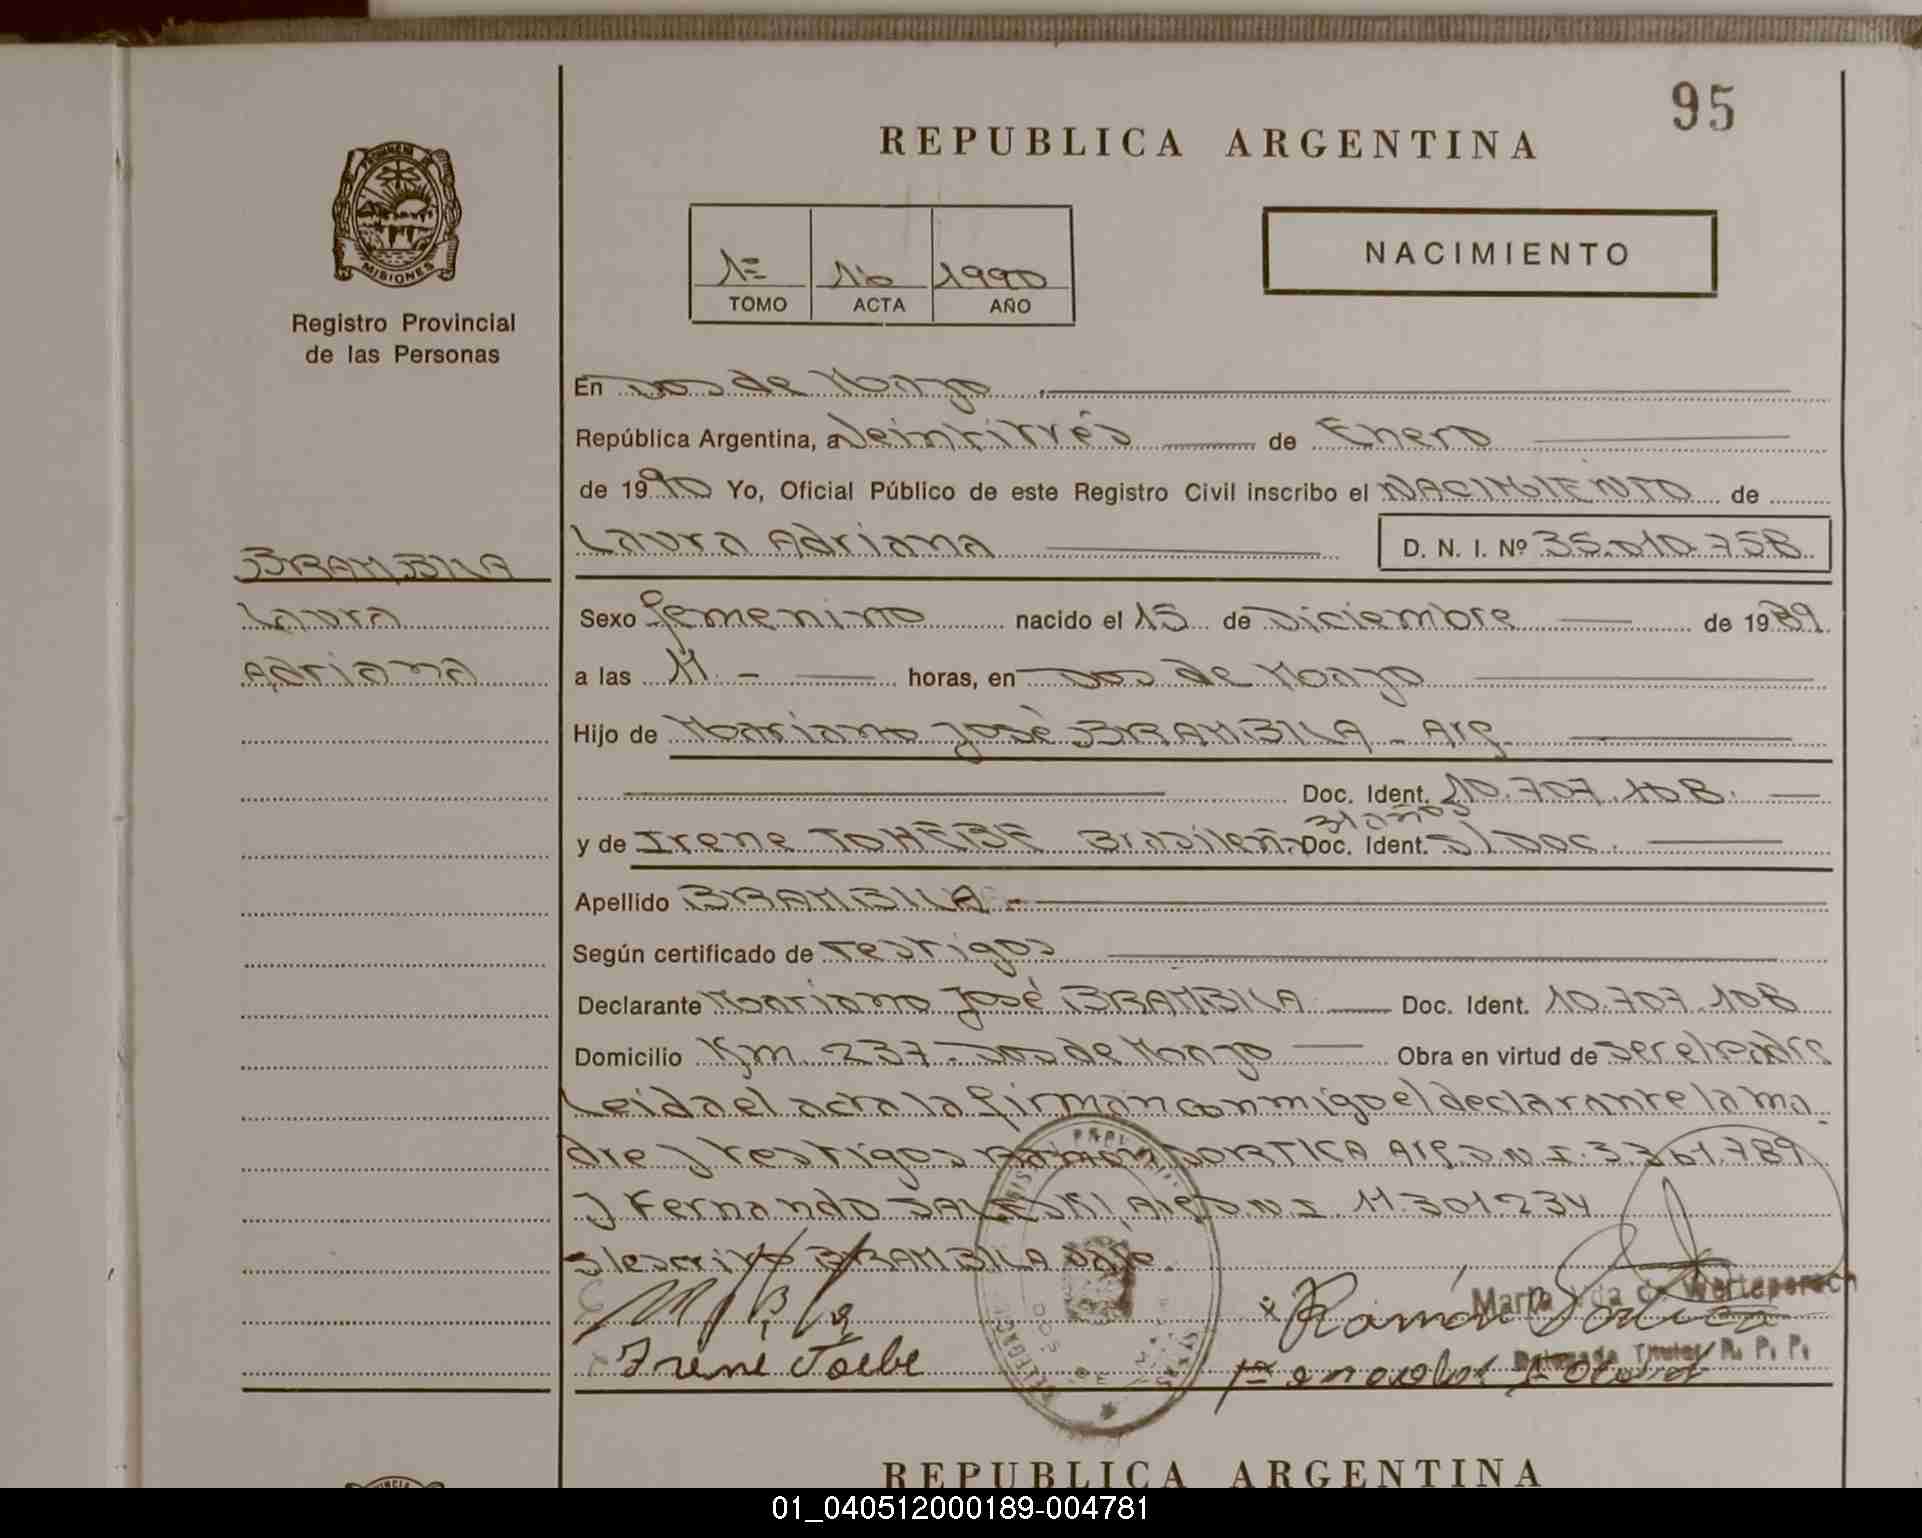 95
REPUBLICA ARGENTINA
PROVINCIA DE
MISIONES
Registro Provincial
de las Personas
1º 16 1990
TOMO ACTA AÑO
NACIMIENTO
En Dos de Mayo
República Argentina, a Veintitrés de Enero
de 1990 Yo, Oficial Público de este Registro Civil inscribo el NACIMIENTO de
Laura Adriana D. N. I. Nº 35.010.758
BRAMBILA
Laura
Adriana
Sexo femenino nacido el 15 de Diciembre de 1989
a las 11 - horas, en Dos de Mayo
Hijo de Mariano José BRAMBILA - Arg.
Doc. Ident. 10.707.108.
31 años
y de Irene TOHEBE Brasileña Doc. Ident. S/Doc.
Apellido BRAMBILA.-
Según certificado de testigos
Declarante Mariano José BRAMBILA Doc. Ident. 10.707.108
Domicilio Km. 237 - Dos de Mayo Obra en virtud de ser el padre
Leida el acta la firman conmigo el declarante la ma
dre y testigos Ramón DORTICA Arg D.N.I. 3.361.789
y Fernando Arg D.N.I. 11.301.234
S/escrito BRAMBILA vale.
Irene Toebe
Ramón
María Vda de Werteperach
Delegada Titular R. P. P.
REPUBLICA ARGENTINA
01_040512000189-004781